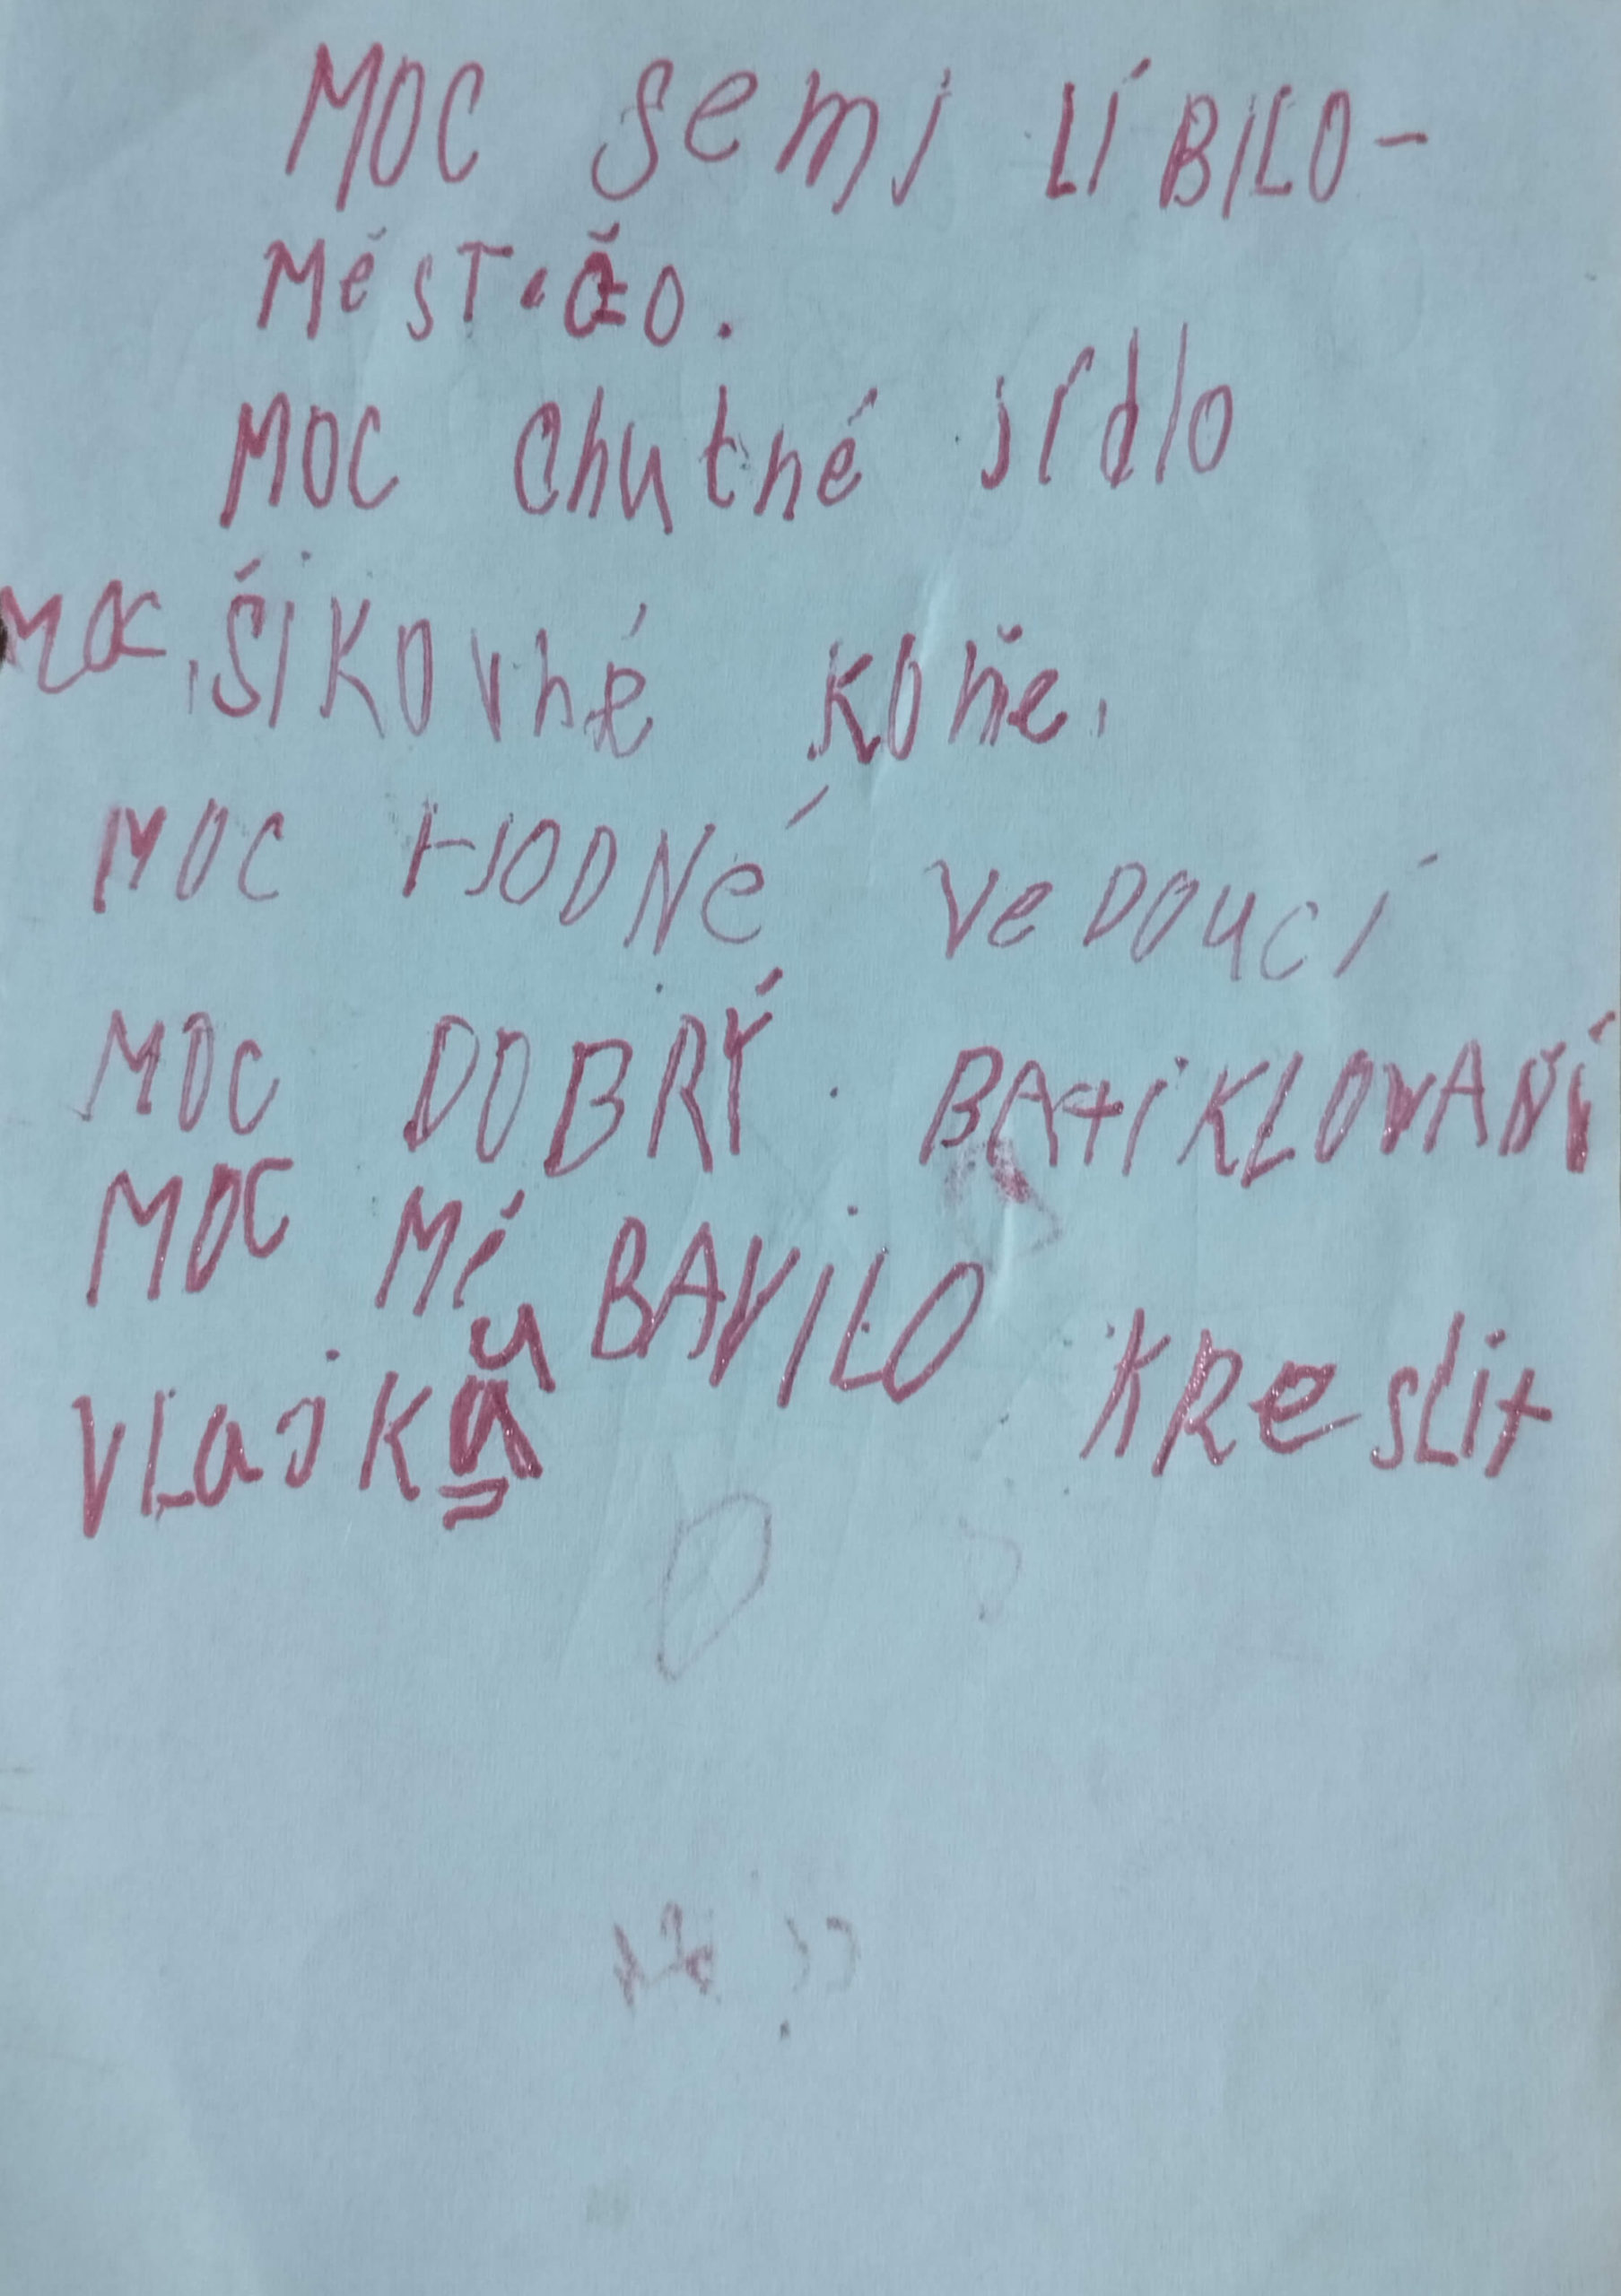 MOC semi LÍBILO-
MěST.čo.
MOC Chutné jídlo
MOC, ŠIKOVNé KOňe.
MOC HODNé VeDOUCÍ
MOC DOBRÝ. BAtiKLOVAŇÍ
MOC Mě BAVILO KReslit
VLajkau